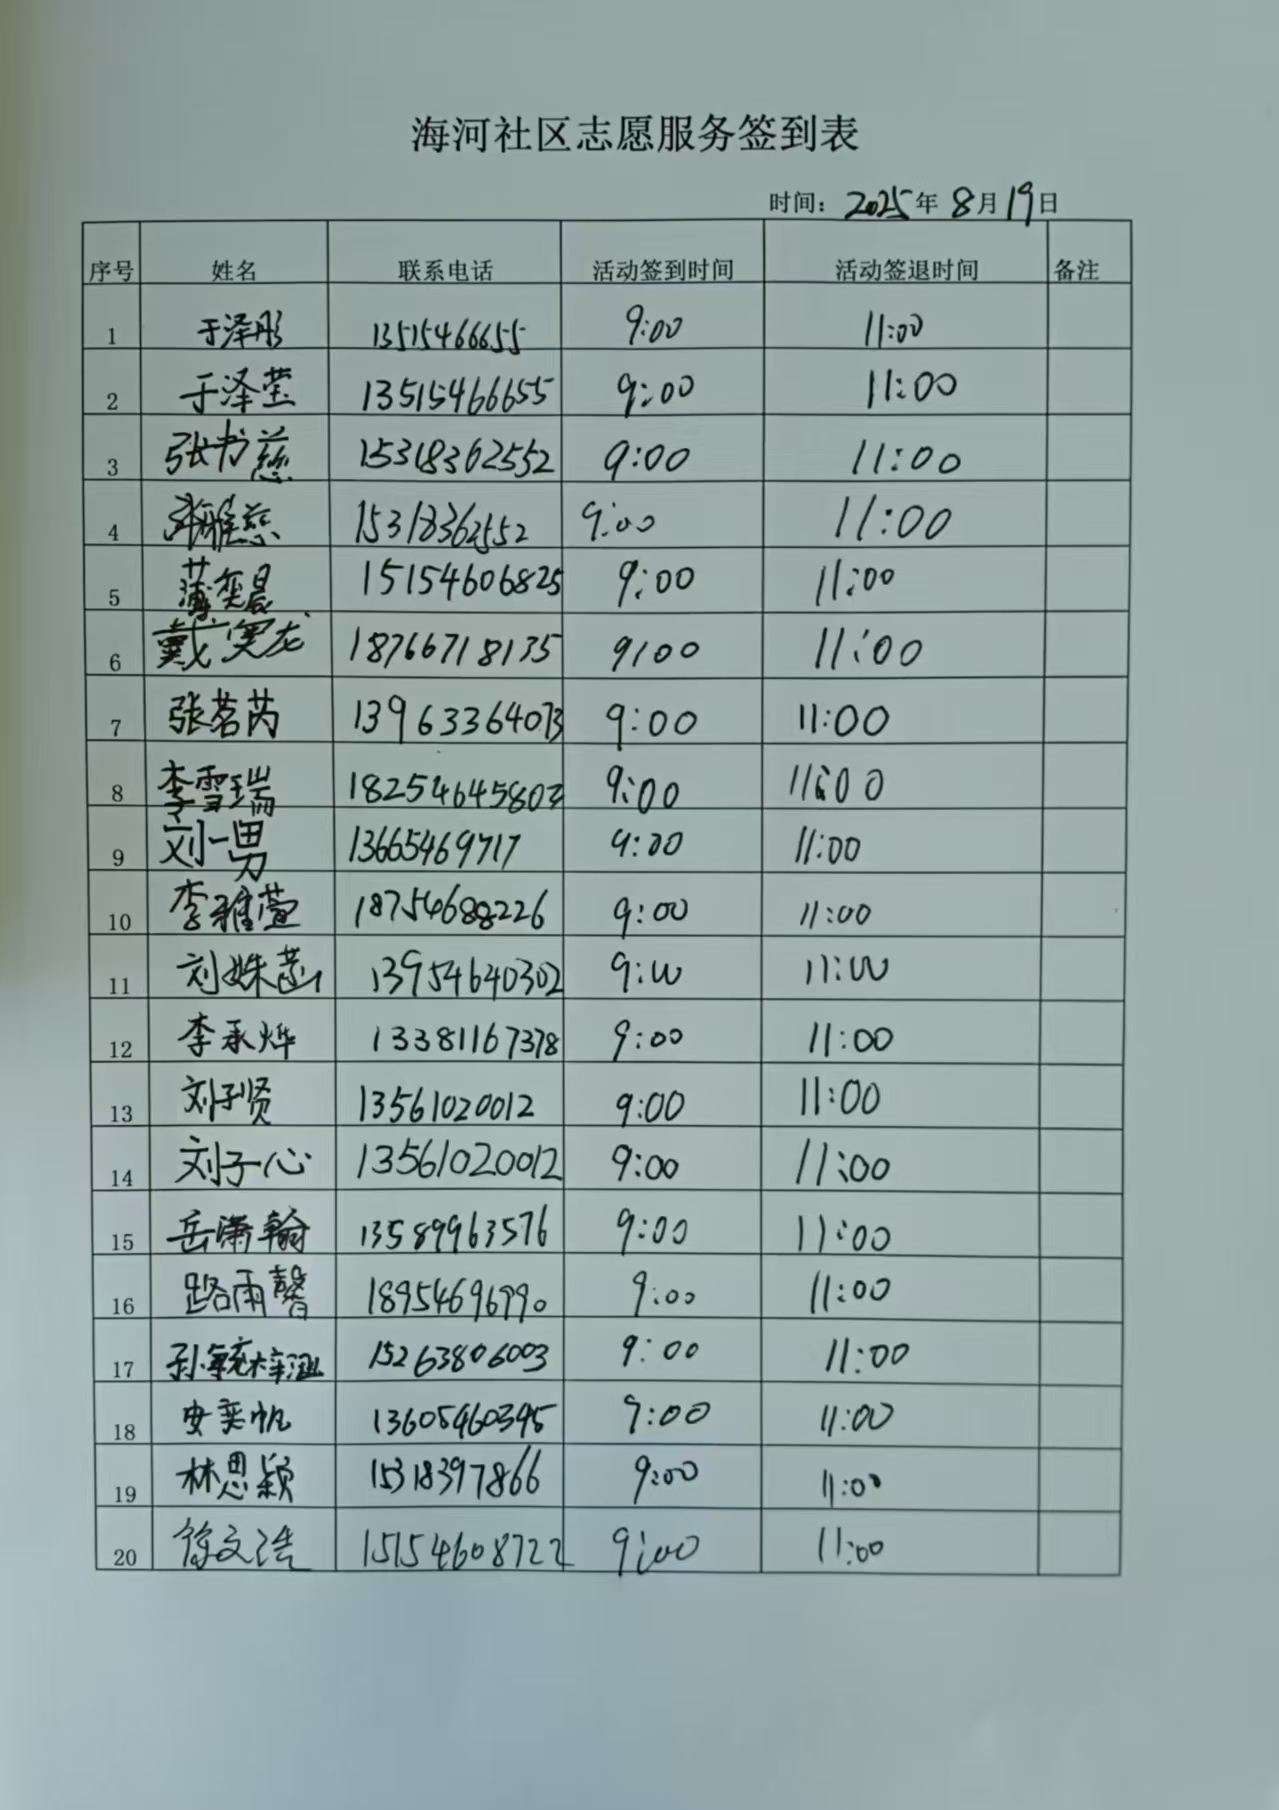 海河社区志愿服务签到表
时间：2025年8月19日
序号 姓名 联系电话 活动签到时间 活动签退时间 备注
1 于泽彤 13515466655 9:00 11:00
2 于泽莹 13515466655 9:00 11:00
3 张书慈 15318362552 9:00 11:00
4 张雅慈 15318362552 9:00 11:00
5 薄奕晨 15154606825 9:00 11:00
6 戴 18766718135 9:00 11:00
7 张茗芮 13963364073 9:00 11:00
8 李雪瑞 18254645803 9:00 11:00
9 刘一男 13665469717 9:00 11:00
10 李雅萱 18754688226 9:00 11:00
11 刘姝菡 13954640302 9:00 11:00
12 李承烨 13381167378 9:00 11:00
13 刘子贤 13561020012 9:00 11:00
14 刘子心 13561020012 9:00 11:00
15 岳潇翰 13589963576 9:00 11:00
16 路雨馨 18954696990 9:00 11:00
17 孙毓梓涵 15263806003 9:00 11:00
18 安奕帆 13605460395 9:00 11:00
19 林思颖 15318397866 9:00 11:00
20 徐文浩 15154608722 9:00 11:00